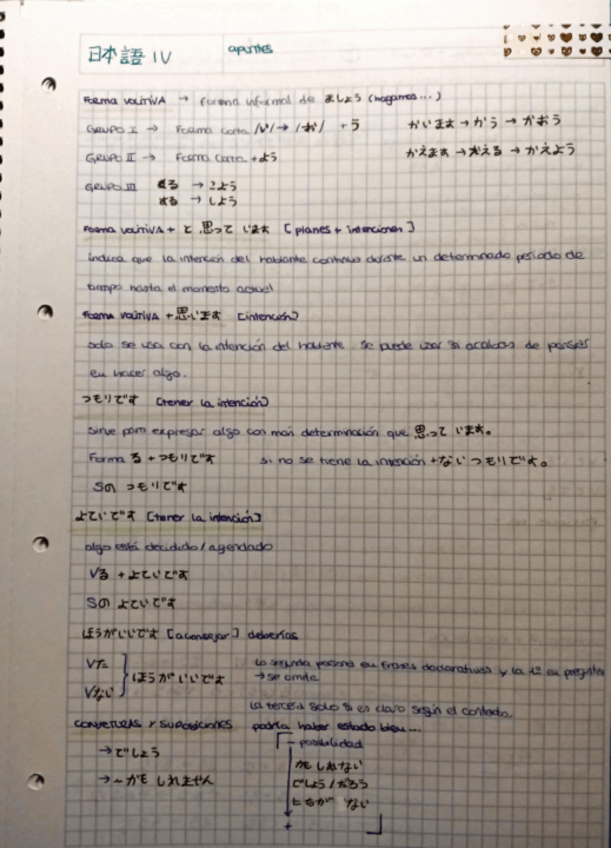 日本語 IV
apuntes
Forma volitiva → forma informal de ましょう (hagamos...)
Grupo I → Forma corta /い/→/お/ + う かいます→かう→かおう
Grupo II → Forma corta + よう かえます→かえる→かえよう
Grupo III くる → こよう
する → しよう
Forma volitiva + と 思って います [planes + intenciones]
indica que la intención del hablante continua durante un determinado período de
tiempo hasta el momento actual
Forma volitiva + 思います [intención]
solo se usa con la intención del hablante. se puede usar si acabas de pensar
en hacer algo.
つもりです [tener la intención]
sirve para expresar algo con más determinación que 思って います。
Forma る + つもりです si no se tiene la intención +ないつもりです。
Sの つもりです
よていです [tener la intención]
algo está decidido / agendado
Vる + よていです
Sの よていです
ほうがいいです [aconsejar] deberías
Vた
Vない
ほうが いいです
La segunda persona en frases declarativas y la 1ª en preguntas
→ se omite
La tercera solo si es claro según el contexto.
conjeturas y suposiciones podría haber estado bien...
→ でしょう
→ ~かも しれません
- posibilidad
かもしれない
でしょう / だろう
ない
+